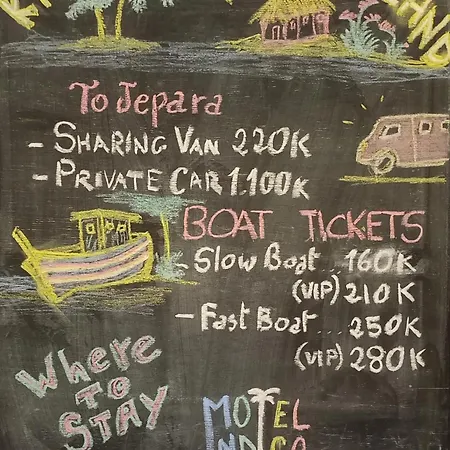 To Jepara
- SHARING VAN 220K
- PRIVATE CAR 1.100K
BOAT TICKETS
- Slow Boat .. 160K
(VIP) 210K
- Fast Boat ... 250K
(VIP) 280K
Where
TO
STAY
MOTEL